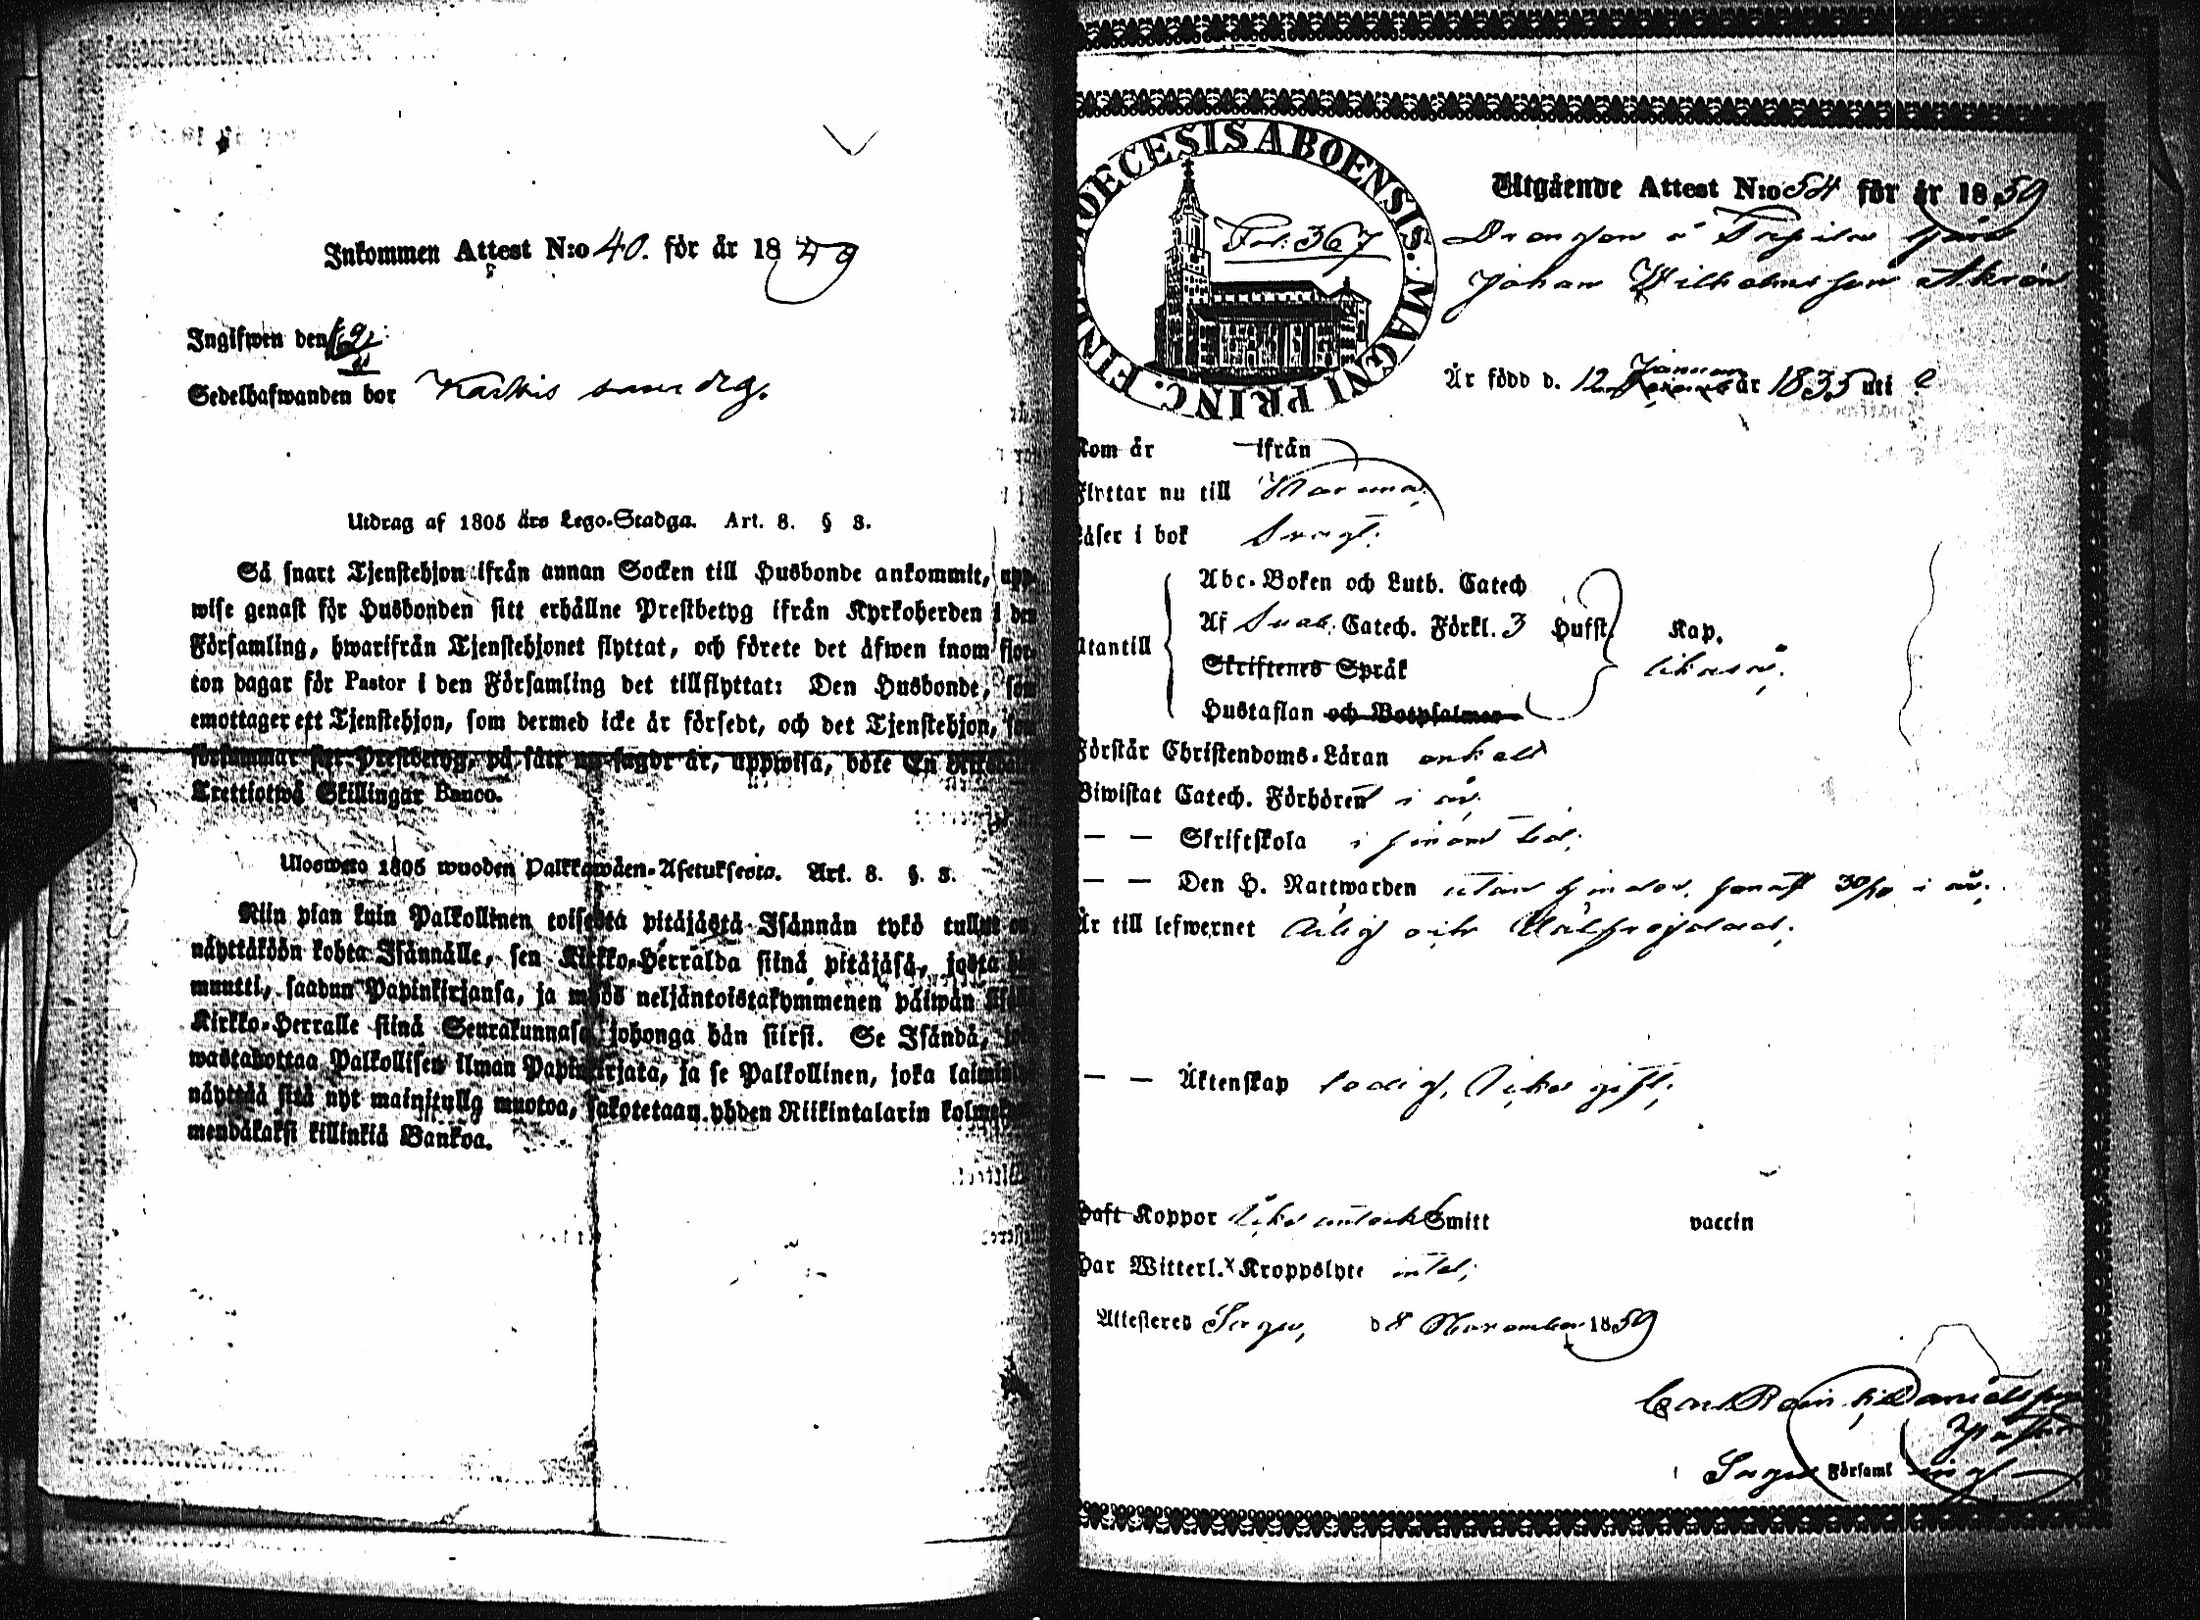 Inkommen Attest N:o 40. för år 1859
Ingifwen den 9/11
Sedelhafwanden bor Karkis
Utdrag af 1805 års Lego-Stadga. Art. 8. § 3.
Så snart Tjenstehjon ifrån annan Socken till Husbonde ankommit, upp-
wise genast för Husbonden sitt erhållne Prestbetyg ifrån Kyrkoherden i den
Församling, hwarifrån Tjenstehjonet flyttat, och förete det äfwen inom fjor-
ton dagar för Pastor i den Församling det tillflyttat: Den Husbonde, som
emottager ett Tjenstehjon, som dermed icke är försedt, och det Tjenstehjon, som
försummar sitt Prestbetyg, på sätt nu sagdt är, uppwisa, böte En Riksdaler
Trettiotwå Skillingar Banco.
Ulosweto 1805 wuoden Palkkawäen-Asetuksesta. Art. 8. §. 3.
Niin pian kuin Palkollinen toisesta pitäjästä Isännän tykö tullut on
näyttäköön kohta Isännälle, sen Kirkko-Herralda siinä pitäjäsä, josta hän
muutti, saadun Papinkirjansa, ja myös neljäntoistakymmenen päiwän
Kirkko-Herralle siinä Seurakunnasa johonga hän siirsi. Se Isändä, joka
wastaanottaa Palkollisen ilman Papinkirjata, ja se Palkollinen, joka
näyttää sitä nyt mainitulla muotoa, sakotetaan yhden Riikintalarin
mendäkaksi killinkiä Bankoa.
DIOECESIS ABOENSIS. MAGNI PRINC. FINL.
Fol: 367
Utgående Attest N:o 54 för år 1859
Drengen
Johan Wilhelmsson Akrén
Är född d. 12 Januari år 1835 uti ?
Kom år ifrån
Flyttar nu till
Läser i bok Svagt;
Abc-Boken och Luth. Catech
Af Svab. Catech. Förkl. 3 Hufst. Kap.
Utantill Skriftenes Språk likaså;
Hustaflan och Botpsalmer
Förstår Christendoms-Läran enkelt
Biwistat Catech. Förhören i år;
— — Skriftskola i sinom tid;
— — Den H. Nattwarden utan hinder, senast 30/10 i år;
Är till lefwernet Ärlig och Wälfrejdad;
— — Äktenskap ledig, icke gift;
Haft Koppor icke antecknadt Smitt vaccin
Har Witterl. Kroppslyte intet;
Attesteres d 8 November 1859
Danielsson
Församling